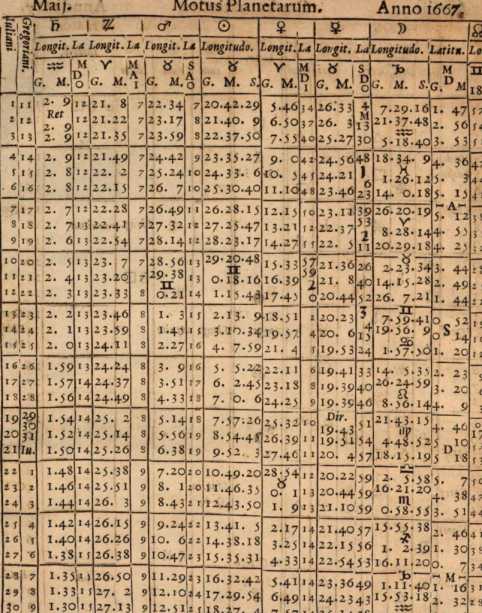 Maij. Motus Planetarum. Anno 1667.
Juliani Gregoriani. ♄ ♃ ♂ ☉ ♀ ☿ ☽
Longit. La Longit. La Longit. La Longitudo. Longit. La Longit. La Longitudo. Latitu.
♒ M D ♈ M A ♉ S A ♉ ♈ M D ♉ S D ♑ M D
G. M. G. M. G. M. G. M. S. G. M. G. M. G. M. S. G. M.
1 11 2. 9 12 21. 8 7 22.34 7 20.42.29 5.46 34 26.33 7.29.16 1. 47
Ret
2 12 2. 9 12 21.22 7 23.17 8 21.40. 9 6.50 37 26. 3 13 21.37.48 2. 56
3 13 2. 9 12 21.35 7 23.59 8 22.37.50 7.55 40 25.27 30 5.18.40 3. 53
4 14 2. 9 12 21.49 7 24.42 9 23.35.27 9. 0 42 24.56 48 18.34. 9 4. 36
5 15 2. 8 12 22. 2 7 25.24 10 24.33. 6 10. 5 45 24.21 1.26.12 5. 3
6 16 2. 8 12 22.15 7 26. 7 10 25.30.40 11.10 48 23.46 23 14. 0.18 5. 15
7 17 2. 7 12 22.28 7 26.49 11 26.28.15 12.15 50 23.11 39 26.20.19 5. 12
8 18 2. 7 13 22.41 7 27.32 12 27.25.47 13.21 52 22.37 8.28.14 4. 55
9 19 2. 6 13 22.54 7 28.14 12 28.23.17 14.27 55 22. 5 11 20.29.18 4. 25
10 20 2. 5 13 23. 7 7 28.56 13 29.20.48 15.33 57 21.36 26 2.23.34 3. 44
11 21 2. 4 13 23.20 7 29.38 13 0.18.16 16.39 59 21. 8 40 14.15.28 2. 49
12 22 2. 3 13 23.33 8 0.21 14 1.15.43 17.45 20.44 52 26. 7.21 1. 44
13 23 2. 2 13 23.46 8 1. 3 15 2.13. 9 18.51 2 20.23 7.59.41 0 52
14 24 2. 1 13 23.59 8 1.45 15 3.10.34 19.57 4 20. 6 13 19.56. 9 0 14
15 25 2. 0 13 24.11 8 2.27 16 4. 7.59 21. 4 19.53 24 1.57.50 1. 20
16 26 1.59 13 24.24 8 3. 9 16 5. 5.22 22.11 6 19.41 33 14. 5.35 2. 23
17 27 1.57 14 24.37 8 3.51 17 6. 2.45 23.18 8 19.39 40 26.24.59 3. 20
18 28 1.56 14 24.49 8 4.33 17 7. 0. 6 24.25 9 19.39 46 8.56.14 4. 9
19 29 1.54 14 25. 2 8 5.14 18 7.57.26 25.32 10 Dir. 19.43 51 21.43.15 4. 46
20 30 1.52 14 25.14 8 5.56 19 8.54.48 26.39 11 19.51 54 4.48.52 5 10
21 Iu. 1.50 14 25.26 8 6.38 19 9.52. 3 27.46 20. 4 57 18.15.19 5 18
22 1 1.48 14 25.38 9 7.20 20 10.49.20 28.54 12 20.22 59 2. 5.58 5. 7
23 2 1.46 14 25.51 9 8. 1 20 11.46.35 0. 1 13 20.44 59 16.21.20 4. 38
24 3 1.44 14 26. 3 9 8.43 21 12.43.50 1. 9 13 21.10 59 0.58.55 3. 51
25 4 1.42 14 26.15 9 9.24 22 13.41. 5 2.17 14 21.40 57 15.55.38 2. 46
26 5 1.40 14 26.26 9 10. 6 22 14.38.18 3.25 14 22.15 56 1. 2.39 1. 30
27 6 1.38 15 26.38 9 10.47 23 15.35.31 4.33 14 22.54 53 16.11.20 0. 7
28 7 1.35 15 26.50 9 11.29 23 16.32.42 5.41 14 23.36 49 1.11.40 1. 16
29 8 1.33 15 27. 2 9 12.10 24 17.29.54 6.49 14 24.23 43 15.53.18 2. 32
30 9 1.30 15 27.13 9 12.51